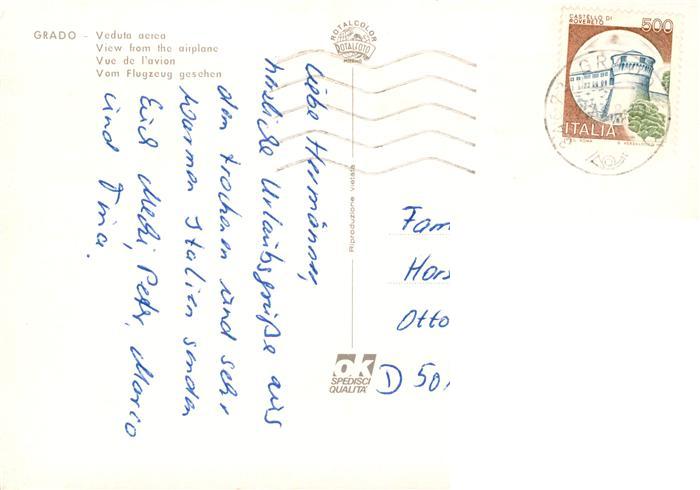 GRADO - Veduta aerea
View from the airplane
Vue de l'avion
Vom Flugzeug gesehen
ROTALCOLOR
ROTALFOTO
MILANO
CASTELLO DI
ROVERETO
500
ITALIA
Riproduzione vietata
ok
SPEDISCI
QUALITÀ
herzliche Urlaubsgrüße aus
dem trockenen und sehr
warmen Italien senden
Euch Mecki, Petr, Mario
und Tina.
Fam
Hors
Otto
D 50